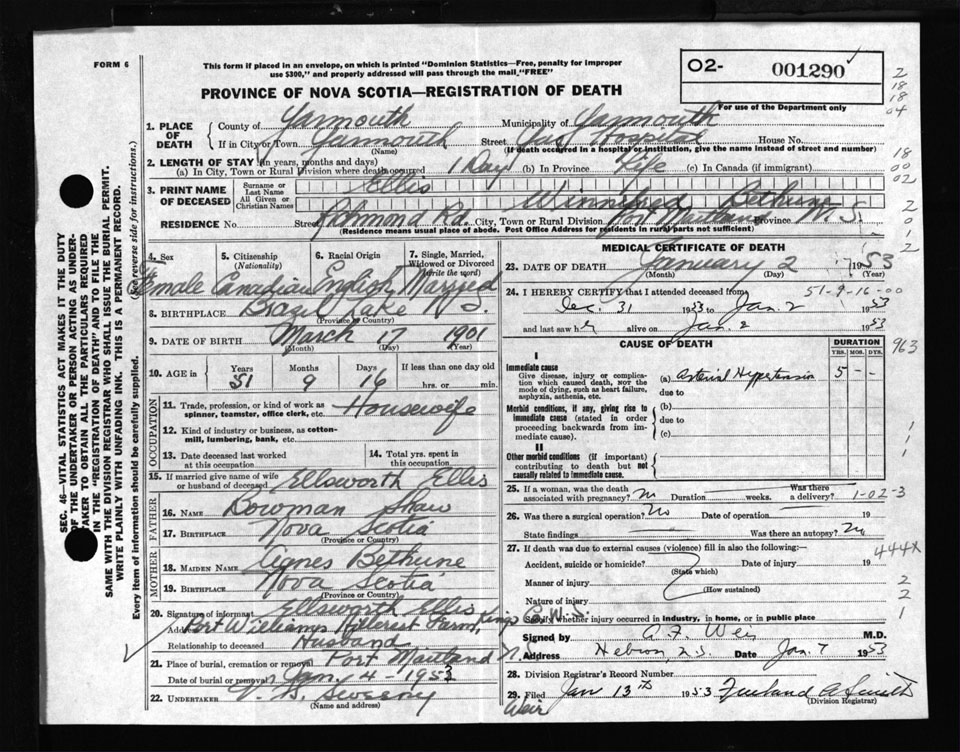 FORM 6
This form if placed in an envelope, on which is printed "Dominion Statistics—Free, penalty for improper
use $300," and properly addressed will pass through the mail "FREE"
PROVINCE OF NOVA SCOTIA—REGISTRATION OF DEATH
O2- 001290
For use of the Department only
2
18
18
04
18
00
02
2
0
1
2
SEC. 46—VITAL STATISTICS ACT MAKES IT THE DUTY
OF THE UNDERTAKER OR PERSON ACTING AS UNDER-
TAKER TO OBTAIN ALL THE PARTICULARS REQUIRED
IN THE "REGISTRATION OF DEATH" AND TO FILE THE
SAME WITH THE DIVISION REGISTRAR WHO SHALL ISSUE THE BURIAL PERMIT.
WRITE PLAINLY WITH UNFADING INK. THIS IS A PERMANENT RECORD.
Every item of information should be carefully supplied. (See reverse side for instructions.)
1. PLACE OF DEATH County of Yarmouth Municipality of Yarmouth
If in City or Town Yarmouth (Name) Street Yar. Hospital House No.
(If death occurred in a hospital or institution, give the name instead of street and number)
2. LENGTH OF STAY (in years, months and days)
(a) In City, Town or Rural Division where death occurred 1 Day (b) In Province Life (c) In Canada (if immigrant)
3. PRINT NAME OF DECEASED Surname or Last Name Ellis
All Given or Christian Names Winnifred Bethune
RESIDENCE No. Street Richmond Rd. City, Town or Rural Division Port Maitland Province N.S.
(Residence means usual place of abode. Post Office Address for residents in rural parts not sufficient)
4. Sex Female
5. Citizenship (Nationality) Canadian
6. Racial Origin English
7. Single, Married, Widowed or Divorced (write the word) Married
8. BIRTHPLACE Brazil Lake N.S.
(Province or Country)
9. DATE OF BIRTH March 17 1901
(Month) (Day) (Year)
10. AGE in Years 51 Months 9 Days 16 If less than one day old hrs. or min.
OCCUPATION
11. Trade, profession, or kind of work as spinner, teamster, office clerk, etc. Housewife
12. Kind of industry or business, as cotton-mill, lumbering, bank, etc.
13. Date deceased last worked at this occupation
14. Total yrs. spent in this occupation.
15. If married give name of wife or husband of deceased Ellsworth Ellis
FATHER
16. Name Bowman Shaw
17. BIRTHPLACE Nova Scotia
(Province or Country)
MOTHER
18. MAIDEN NAME Agnes Bethune
19. BIRTHPLACE Nova Scotia
(Province or Country)
20. Signature of informant Ellsworth Ellis
Address Port Williams Hillcrest Farm, Kings Co. N.S.
Relationship to deceased Husband
21. Place of burial, cremation or removal Port Maitland N.S.
Date of burial or removal Jan. 4 - 1953
22. UNDERTAKER V. S. Sweeny
(Name and address)
MEDICAL CERTIFICATE OF DEATH
23. DATE OF DEATH January 2 1953
(Month) (Day) (Year)
51-9-16-00
24. I HEREBY CERTIFY that I attended deceased from
Dec. 31 1953 to Jan. 2 1953
and last saw her alive on Jan. 2 1953
CAUSE OF DEATH
DURATION
YRS. MOS. DYS.
963
I
Immediate cause
Give disease, injury or complication which caused death, NOT the mode of dying, such as heart failure, asphyxia, asthenia, etc.
(a) Arterial Hypertension 5 - -
due to
Morbid conditions, if any, giving rise to immediate cause (stated in order proceeding backwards from immediate cause).
(b)
due to
(c)
II
Other morbid conditions (if important) contributing to death but not causally related to immediate cause.
1
1
1
25. If a woman, was the death associated with pregnancy? No Duration weeks. Was there a delivery? 1-02-3
26. Was there a surgical operation? No Date of operation 19
State findings Was there an autopsy? No
27. If death was due to external causes (violence) fill in also the following:— 444X
Accident, suicide or homicide? (State which) Date of injury 19
Manner of injury (How sustained)
Nature of injury
Specify whether injury occurred in industry, in home, or in public place
2
2
1
Signed by A. F. Weir M.D.
Address Hebron, N.S. Date Jan. 7 1953
28. Division Registrar's Record Number
29. Filed Jan 13th 1953
(Division Registrar)
Weir